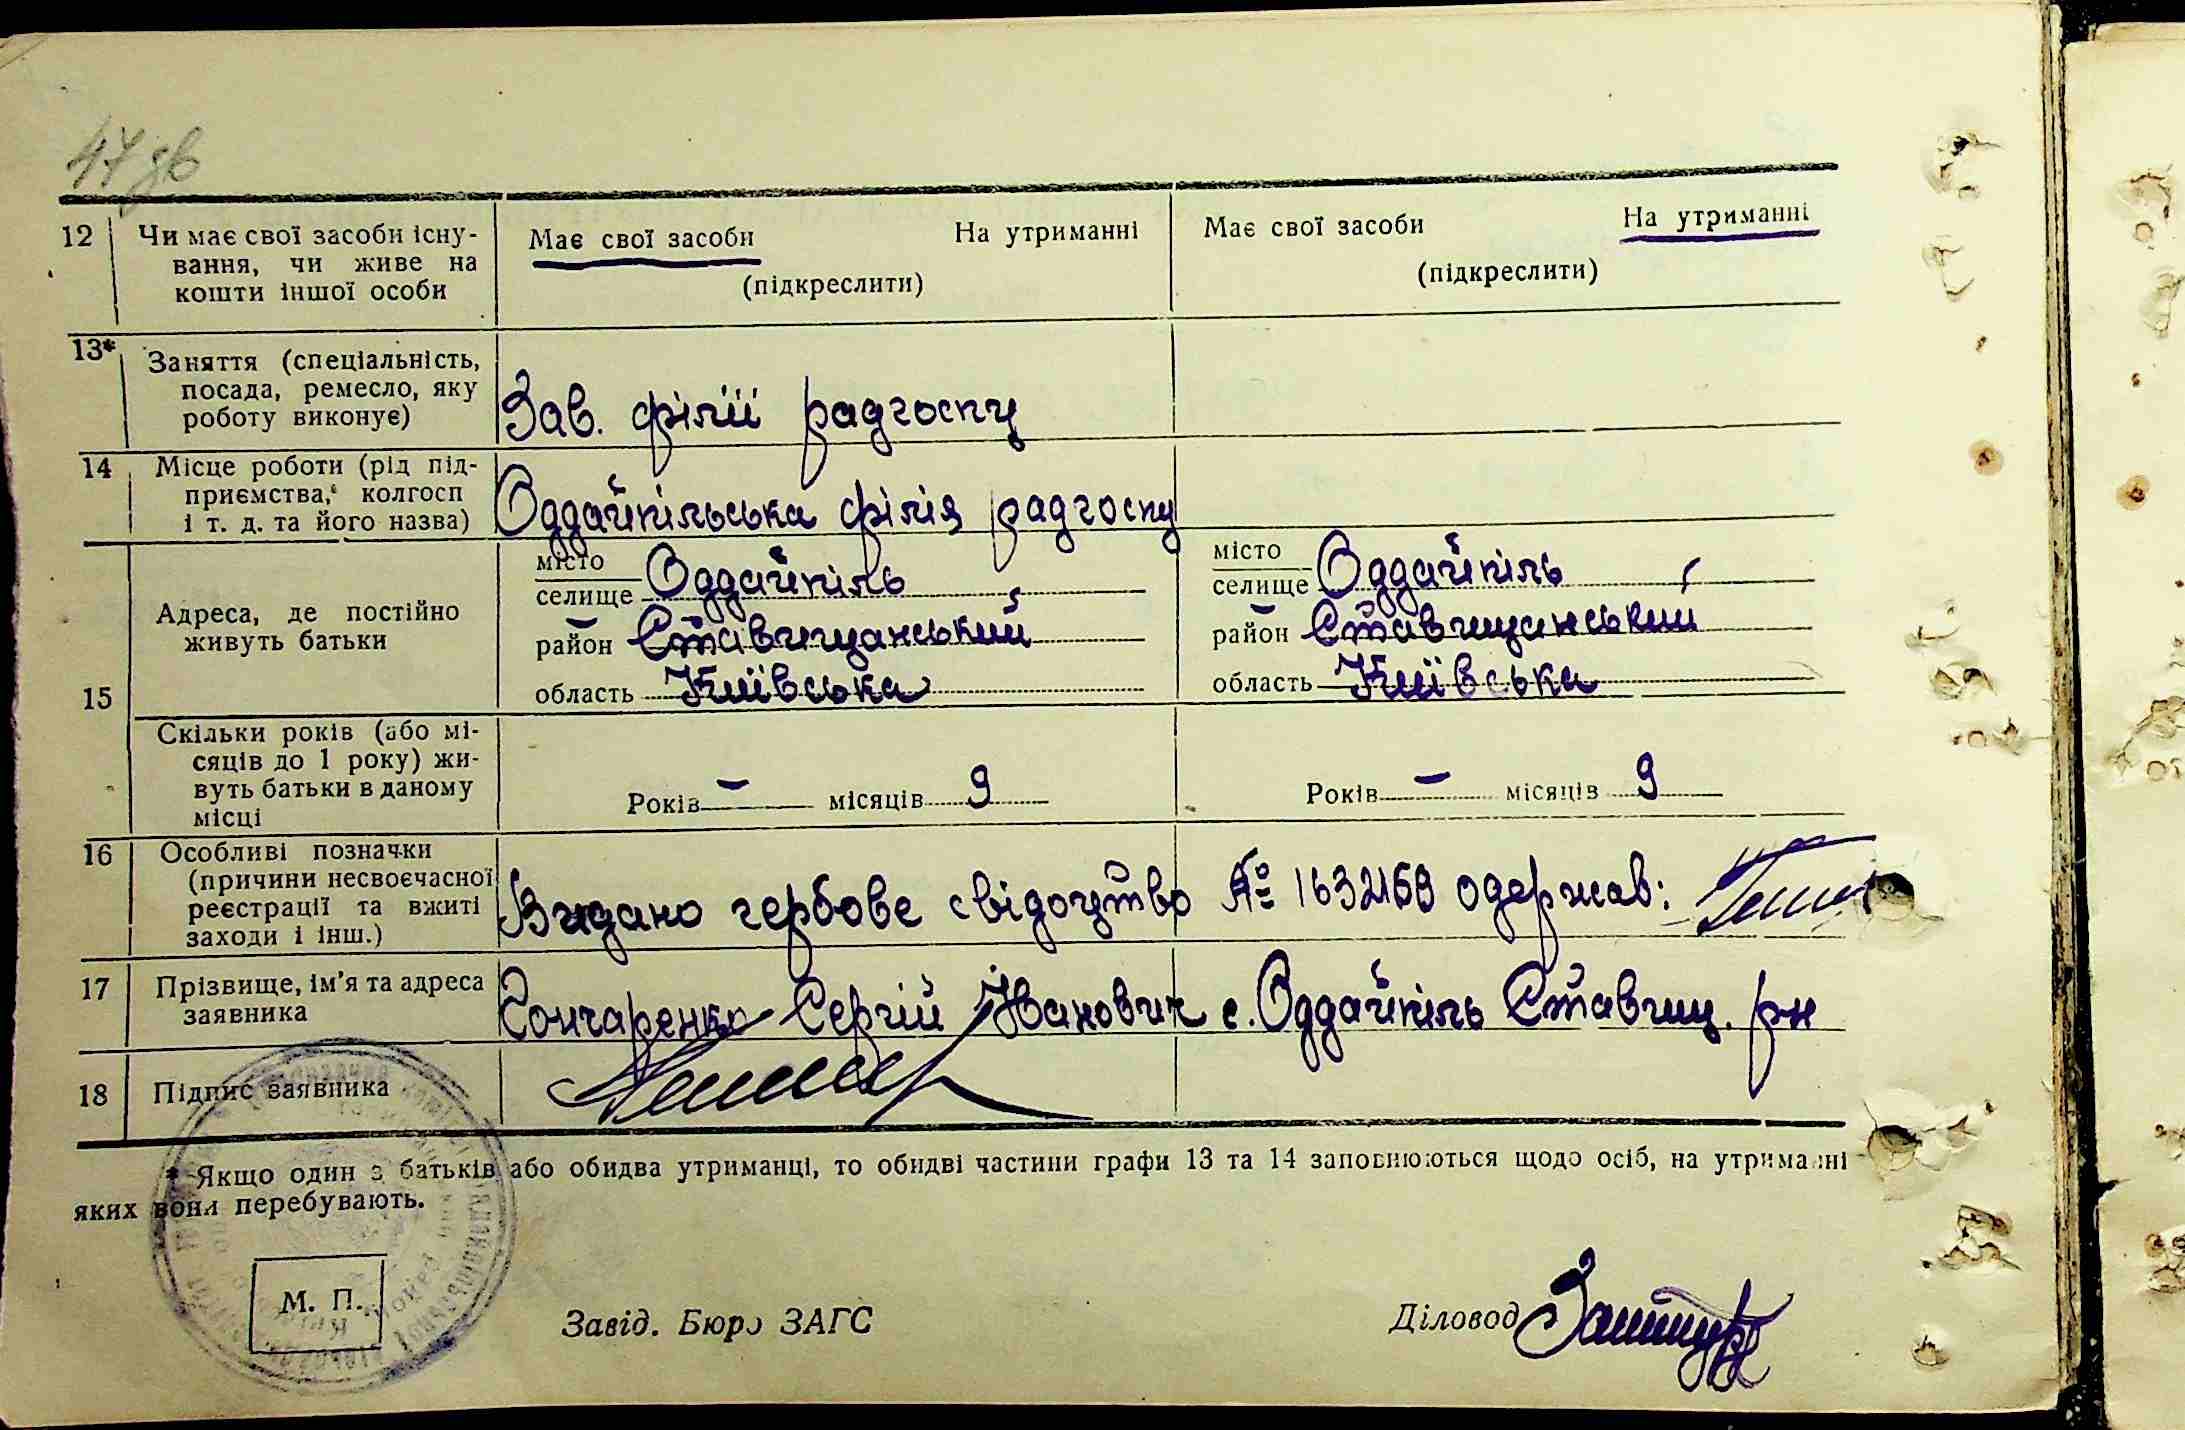 47 зв
12 Чи має свої засоби існу-
вання, чи живе на
кошти іншої особи
Має свої засоби На утриманні
(підкреслити)
Має свої засоби На утриманні
(підкреслити)
13* Заняття (спеціальність,
посада, ремесло, яку
роботу виконує)
Зав. філії радгоспу
14 Місце роботи (рід під-
приємства, колгосп
і т. д. та його назва)
Оддайпільська філія радгоспу
15 Адреса, де постійно
живуть батьки
місто
селище Оддайпіль
район Ставищанський
область Київська
місто
селище Оддайпіль
район Ставищанський
область Київська
Скільки років (або мі-
сяців до 1 року) жи-
вуть батьки в даному
місці
Років — місяців 9
Років — місяців 9
16 Особливі позначки
(причини несвоєчасної
реєстрації та вжиті
заходи і інш.)
Видано гербове свідоцтво № одержав:
17 Прізвище, ім'я та адреса
заявника
Гончаренко Сергій Іванович с. Оддайпіль Ставищ. рн
18 Підпис заявника
* Якщо один з батьків або обидва утриманці, то обидві частини графи 13 та 14 заповнюються щодо осіб, на утриманні
яких вони перебувають.
М. П.
Завід. Бюро ЗАГС
Діловод